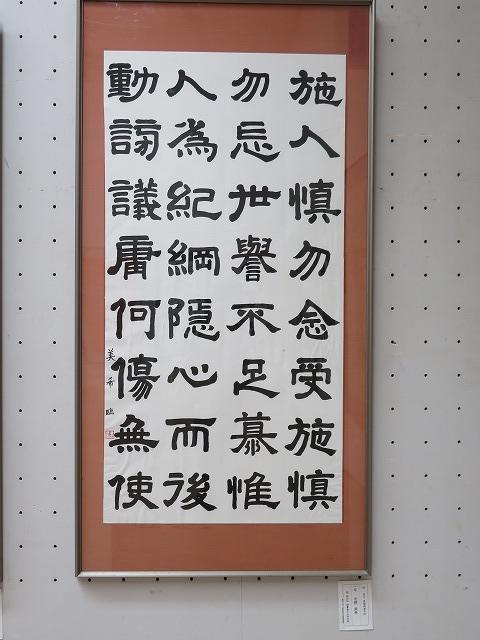 施人慎勿念受施慎
勿忘世譽不足慕惟
人為紀綱隠心而後
動謗議庸何傷無使
美希臨